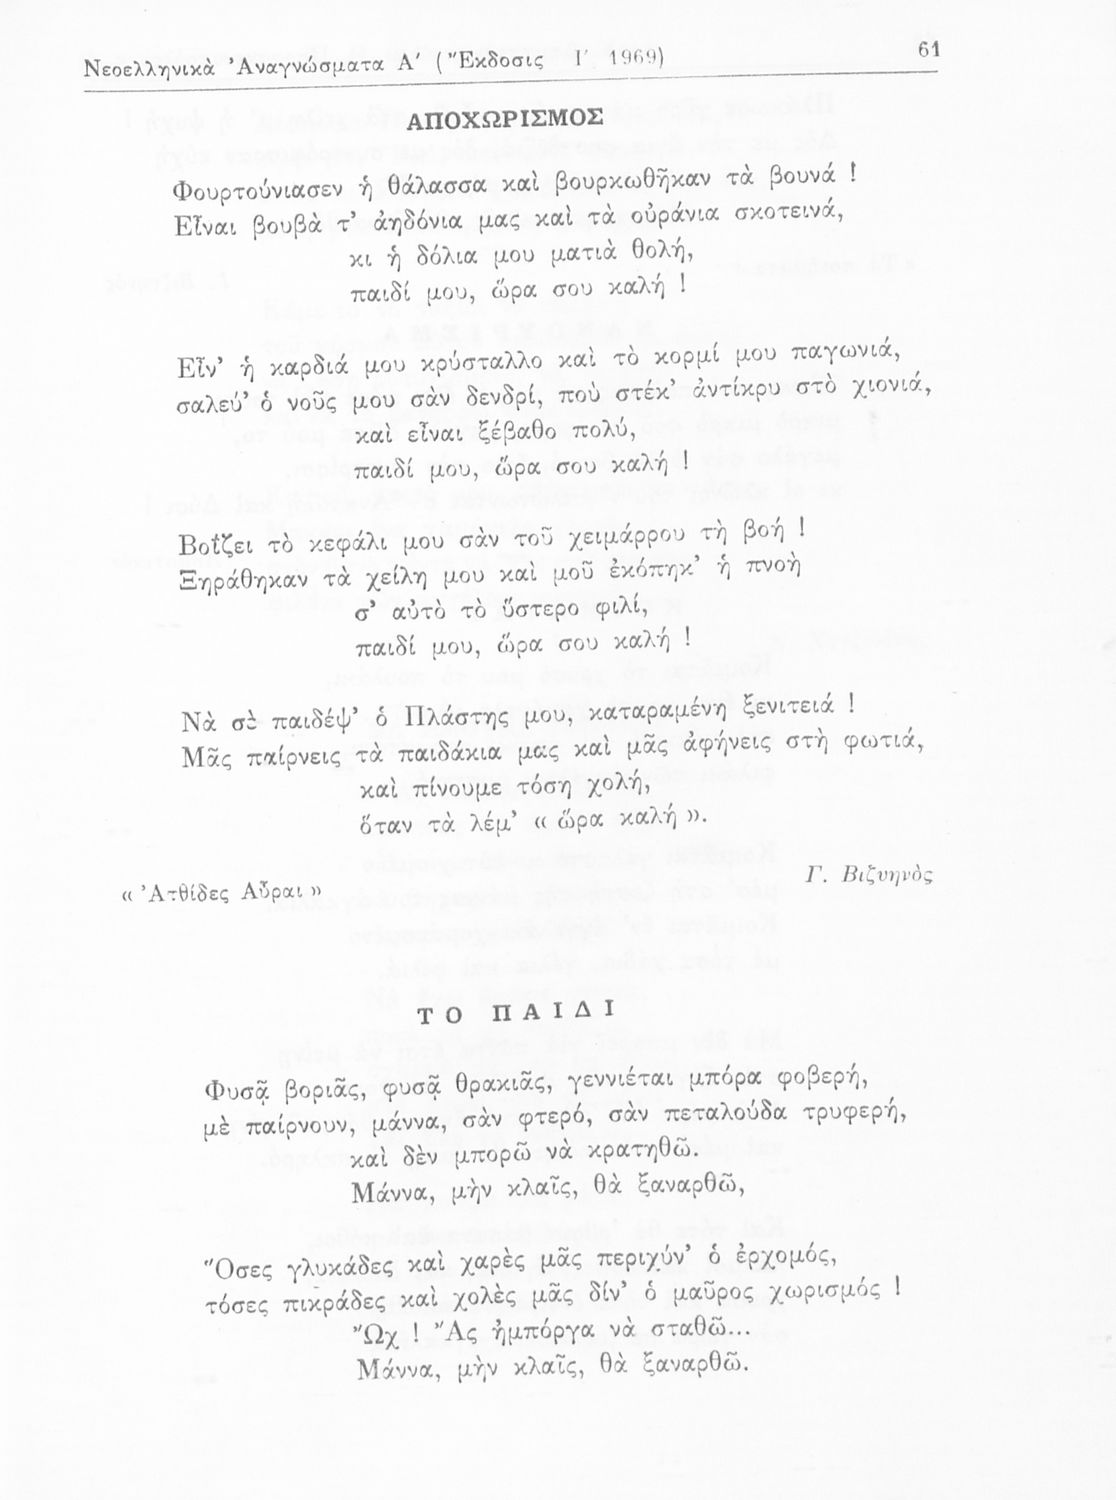 Νεοελληνικὰ Ἀναγνώσματα Α′ (Ἔκδοσις Γ′ 1969) 61
ΑΠΟΧΩΡΙΣΜΟΣ
Φουρτούνιασεν ἡ θάλασσα καὶ βουρκωθῆκαν τὰ βουνά !
Εἶναι βουβὰ τ’ ἀηδόνια μας καὶ τὰ οὐράνια σκοτεινά,
κι ἡ δόλια μου ματιὰ θολή,
παιδί μου, ὥρα σου καλή !
Εἶν’ ἡ καρδιά μου κρύσταλλο καὶ τὸ κορμί μου παγωνιά,
σαλεύ’ ὁ νοῦς μου σὰν δενδρί, ποὺ στέκ’ ἀντίκρυ στὸ χιονιά,
καὶ εἶναι ξέβαθο πολύ,
παιδί μου, ὥρα σου καλή !
Βοΐζει τὸ κεφάλι μου σὰν τοῦ χειμάρρου τὴ βοή !
Ξηράθηκαν τὰ χείλη μου καὶ μοῦ ἐκόπηκ’ ἡ πνοὴ
σ’ αὐτὸ τὸ ὕστερο φιλί,
παιδί μου, ὥρα σου καλή !
Νὰ σὲ παιδέψ’ ὁ Πλάστης μου, καταραμένη ξενιτειά !
Μᾶς παίρνεις τὰ παιδάκια μας καὶ μᾶς ἀφήνεις στὴ φωτιά,
καὶ πίνουμε τόση χολή,
ὅταν τὰ λέμ’ « ὥρα καλή ».
« Ἀτθίδες Αὖραι » Γ. Βιζυηνὸς
ΤΟ ΠΑΙΔΙ
Φυσᾷ βοριᾶς, φυσᾷ θρακιᾶς, γεννιέται μπόρα φοβερή,
μὲ παίρνουν, μάννα, σὰν φτερό, σὰν πεταλούδα τρυφερή,
καὶ δὲν μπορῶ νὰ κρατηθῶ.
Μάννα, μὴν κλαῖς, θὰ ξαναρθῶ,
Ὅσες γλυκάδες καὶ χαρὲς μᾶς περιχύν’ ὁ ἐρχομός,
τόσες πικράδες καὶ χολὲς μᾶς δίν’ ὁ μαῦρος χωρισμός !
Ὤχ ! Ἄς ἠμπόργα νὰ σταθῶ...
Μάννα, μὴν κλαῖς, θὰ ξαναρθῶ.